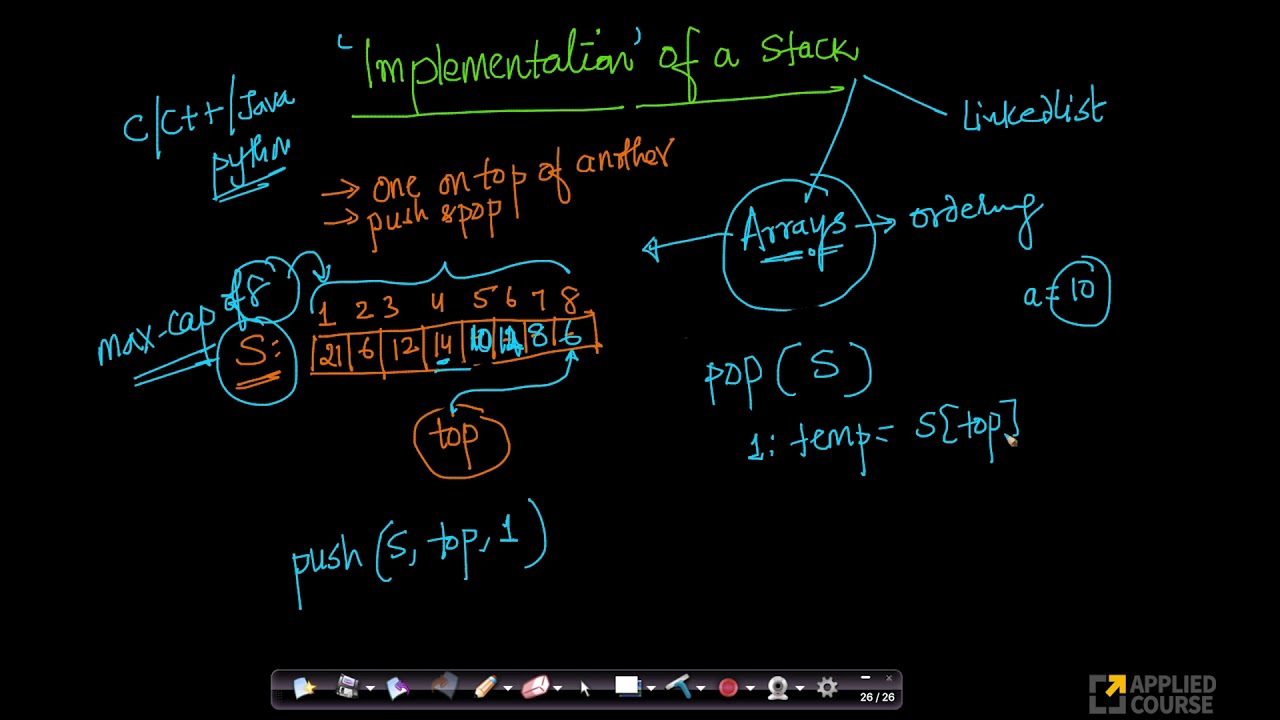 'Implementation' of a stack
C/C++/Java
python
Linkedlist
→ one on top of another
→ push & pop
Arrays → ordering
a = 10
max-cap of 8
1 2 3 4 5 6 7 8
S: 21 6 12 14 10 8 6
top
pop(S)
1: temp = S[top]
push(S, top, 1)
26 / 26
APPLIED
COURSE